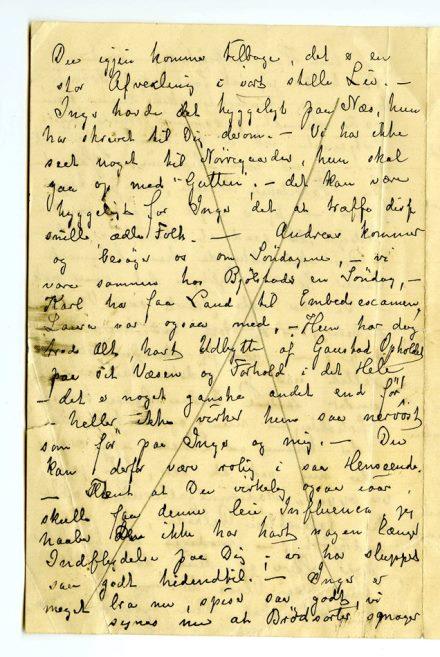 Du igjen komme tilbage, det er en
stor Afvexling i vort stille Liv. —
Inga havde det hyggeligt paa Næs, hun
har skrevet til Dig derom. — Vi har ikke
seet noget til Nørregaards, hun skal
gaa op med "Gutten", — det kan være
hyggeligt for Inga det at træffe disse
snille, ædle Folk. — Andreas kommer
og besøger os om Søndagene, — vi
vare sammen hos Bjølstads en Søndag, —
Karl har faa Land til Embedsexamen,
Laura var ogsaa med, — Hun har dog
trods Alt, havt Udbytte af Gaustad Opholdet
paa sit Væsen og Forhold i det Hele
— det er noget ganske andet end før!
— heller ikke virker hun saa nervøst
som før paa Inga og mig. — Du
kan derfor være rolig i saa Henseende.
— at Du virkelig ogsaa iaar,
skulle faa denne leie Influenza, jeg
haaber den ikke har havt nogen længer
Indflydelse paa Dig, — vi har sluppet
saa godt hidendtil. — Inga er
meget bra nu, spiser saa godt, vi
synes nu at Brödsorter smager